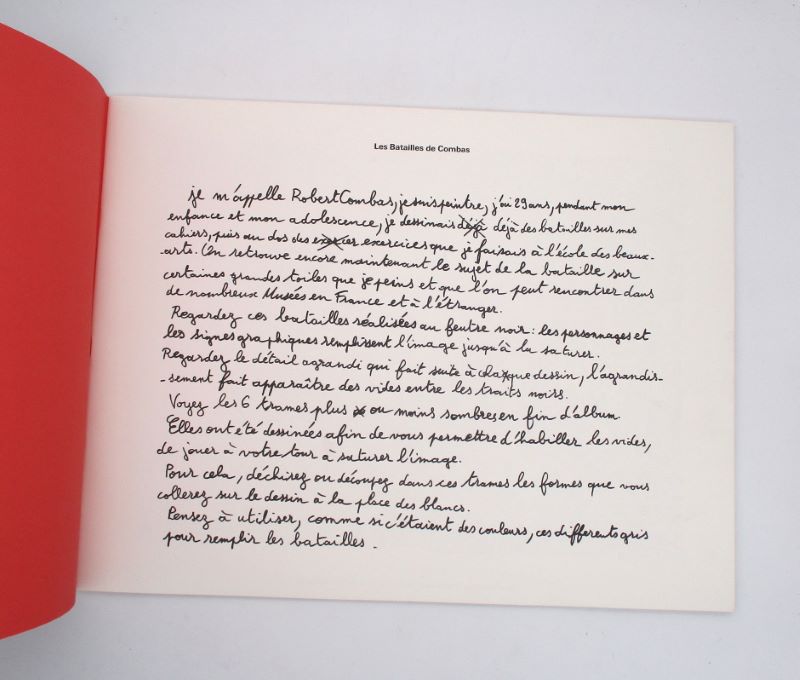 Les Batailles de Combas
je m'appelle Robert Combas, je suis peintre, j'ai 29 ans, pendant mon
enfance et mon adolescence, je dessinais déjà déjà des batailles sur mes
cahiers, puis au dos des exercices que je faisais à l'école des beaux-
arts. On retrouve encore maintenant le sujet de la bataille sur
certaines grandes toiles que je peins et que l'on peut rencontrer dans
de nombreux Musées en France et à l'étranger.
Regardez ces batailles réalisées au feutre noir : les personnages et
les signes graphiques remplissent l'image jusqu'à la saturer.
Regardez le détail agrandi qui fait suite à chaque dessin, l'agrandis-
-sement fait apparaître des vides entre les traits noirs.
Voyez les 6 trames plus ou moins sombres, en fin d'album.
Elles ont été dessinées afin de vous permettre d'habiller les vides,
de jouer à votre tour à saturer l'image.
Pour cela, déchirez ou découpez dans ces trames les formes que vous
collerez sur le dessin à la place des blancs.
Pensez à utiliser, comme si c'étaient des couleurs, ces differents gris
pour remplir les batailles.